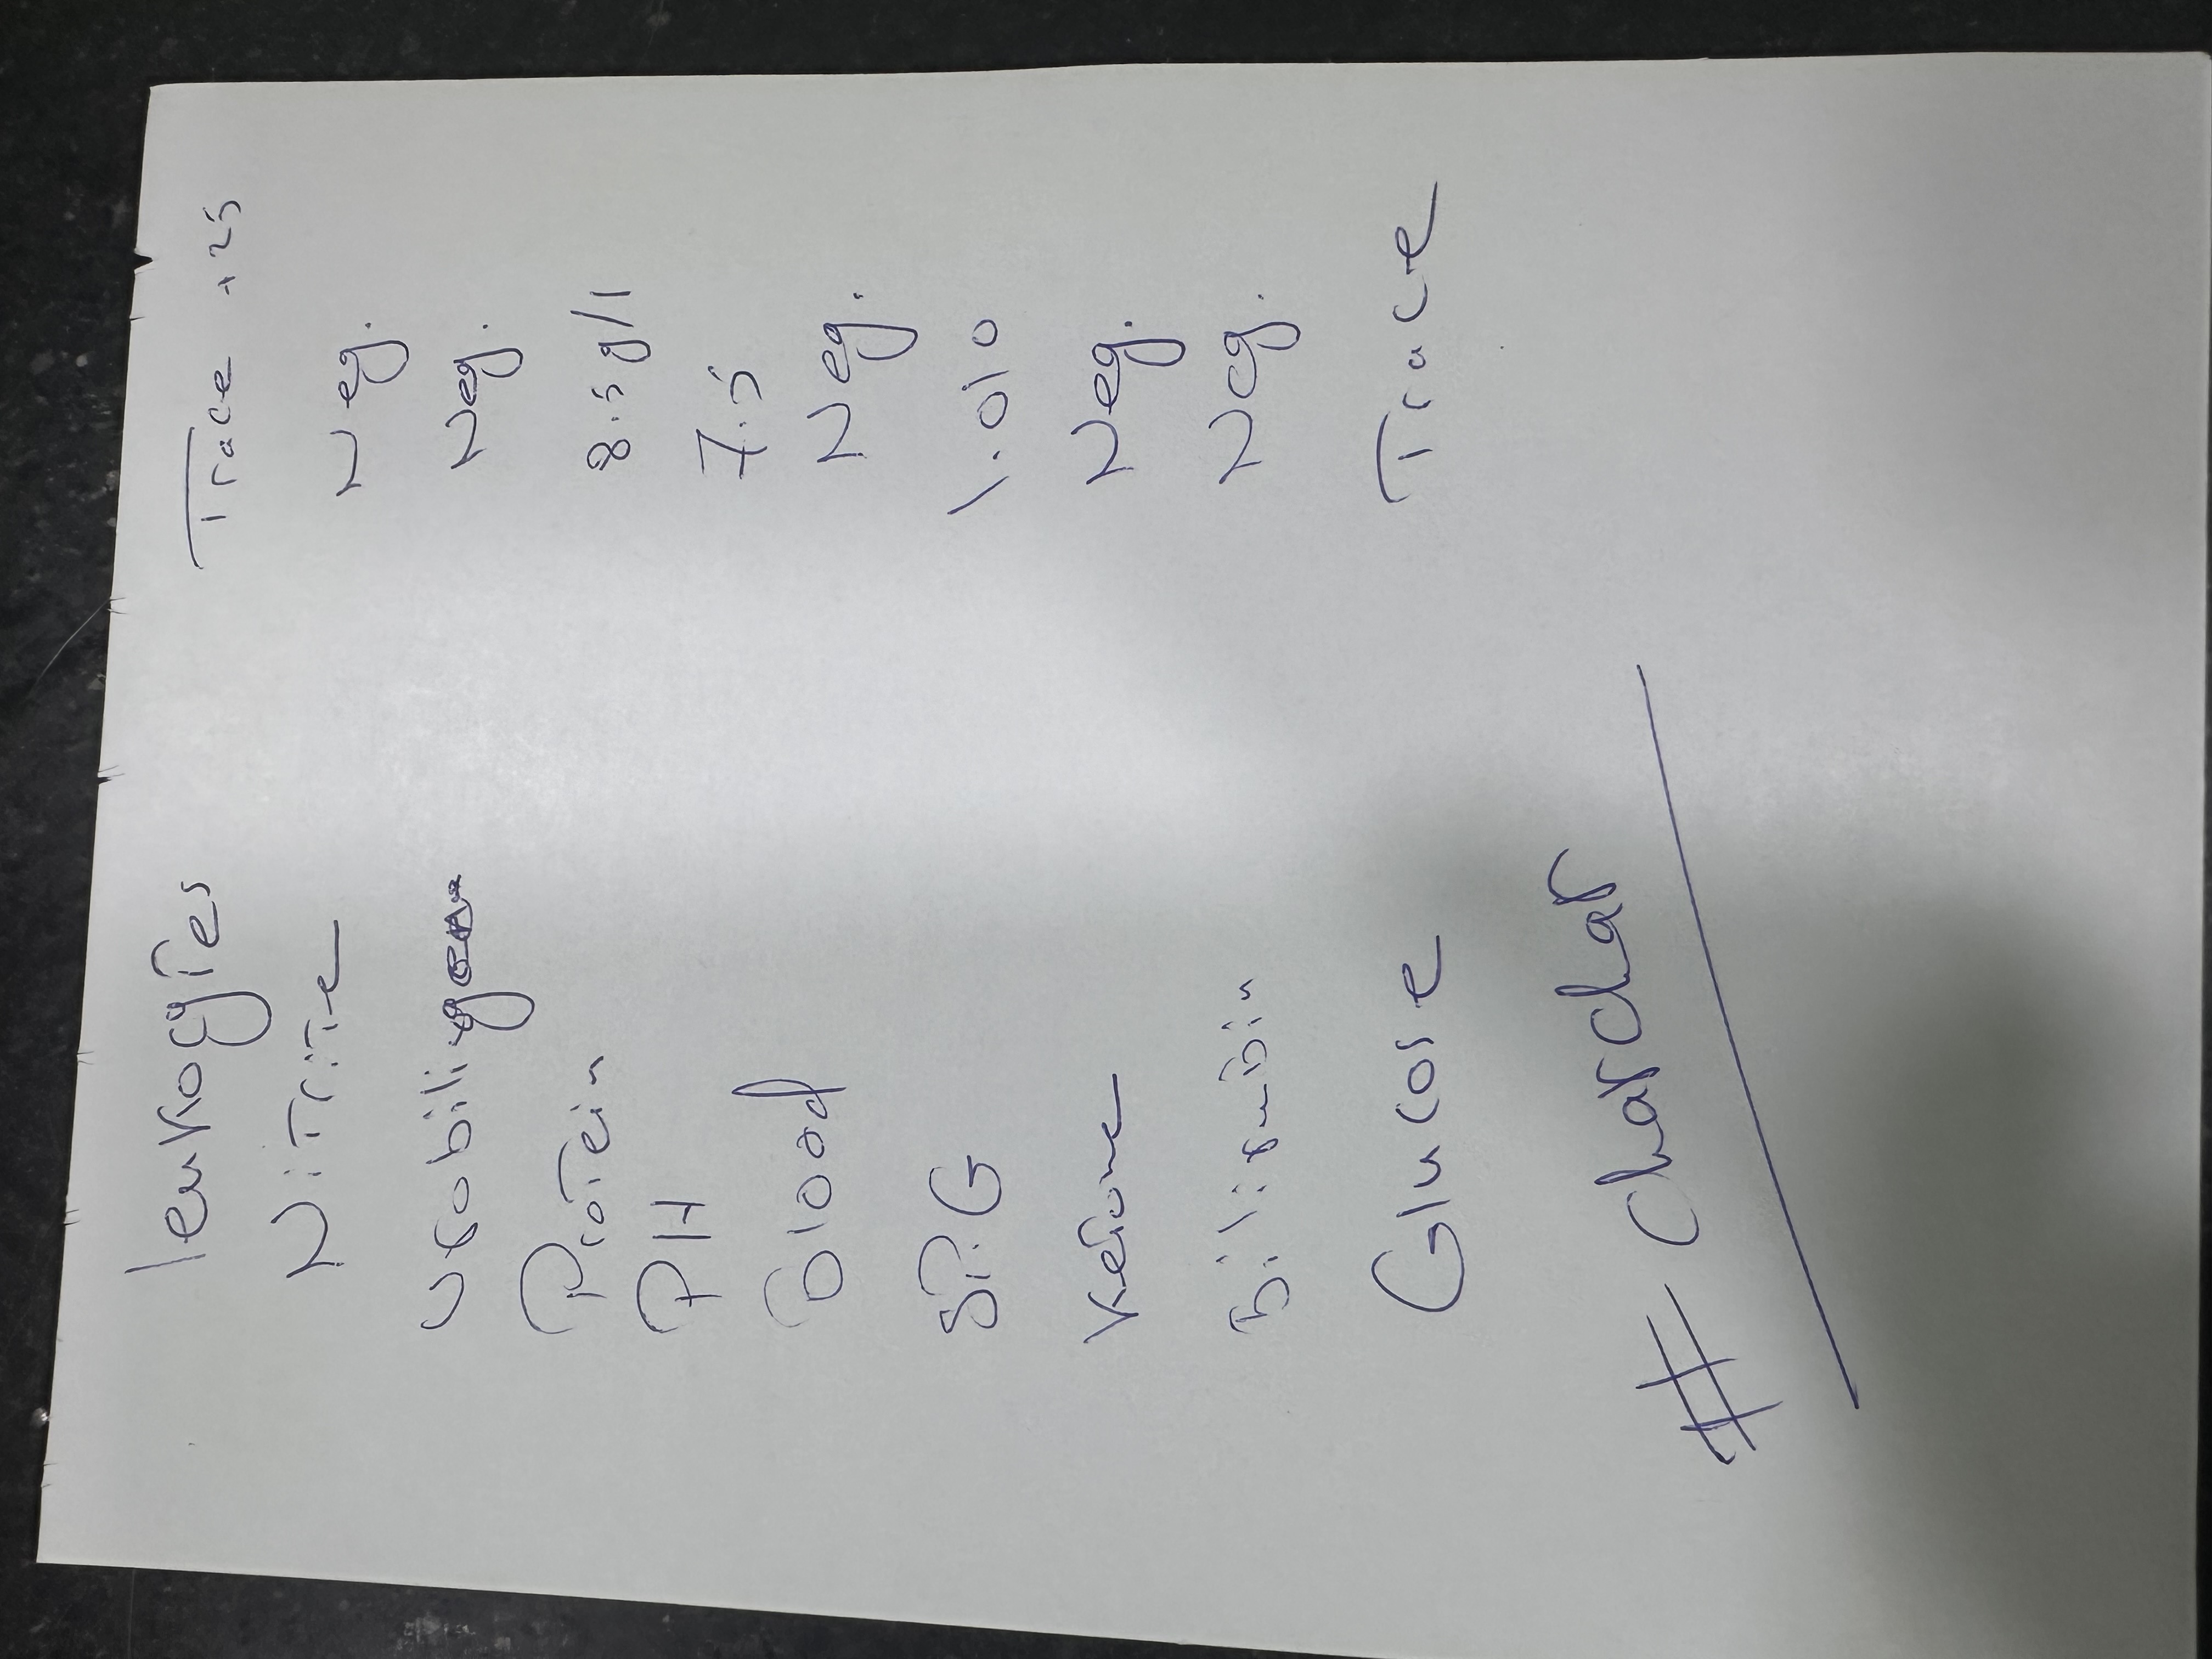 leukogTes Trace +25
NiTriTe Neg.
urobiligen Neg.
ProTein 8.5 g/l
PH 7.5
Blood Neg.
SP.G 1.010
Ketone Neg.
Bilirubin Neg.
Glucose Trace
# Chardar